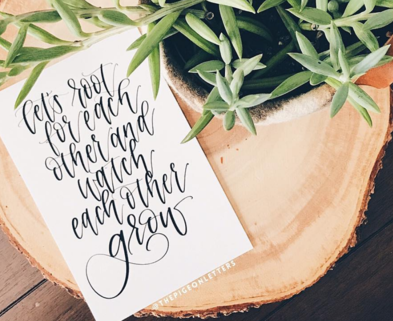 let's root
for each
other and
watch
each other
grow
@THEPIGEONLETTERS